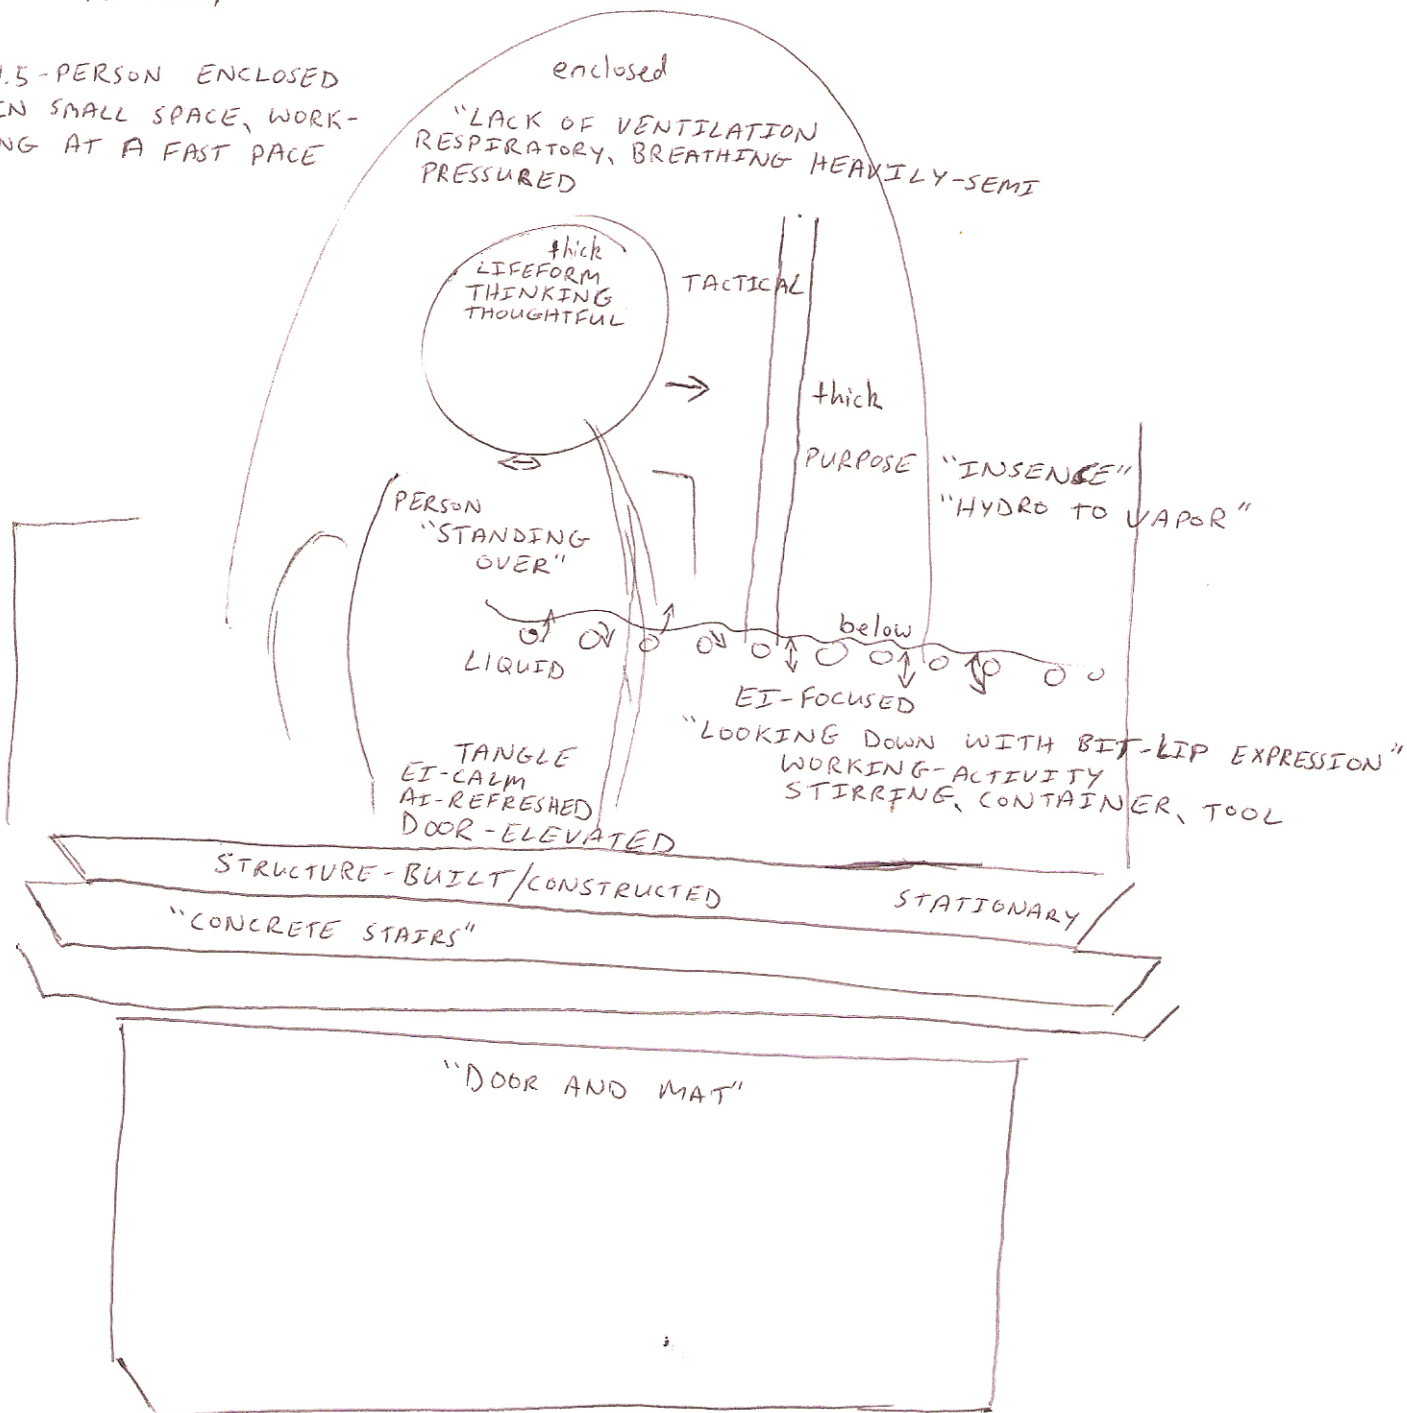 .5-PERSON ENCLOSED
IN SMALL SPACE, WORK-
NG AT A FAST PACE
enclosed
"LACK OF VENTILATION
RESPIRATORY, BREATHING HEAVILY-SEMI
PRESSURED
thick
LIFEFORM
THINKING
THOUGHTFUL
TACTICAL
thick
PURPOSE
"INSENSE"
"HYDRO TO VAPOR"
PERSON
"STANDING
OVER"
below
LIQUID
EI-FOCUSED
"LOOKING DOWN WITH BIT-LIP EXPRESSION"
WORKING-ACTIVITY
STIRRING, CONTAINER, TOOL
TANGLE
EI-CALM
AI-REFRESHED
DOOR-ELEVATED
STRUCTURE-BUILT/CONSTRUCTED
STATIONARY
"CONCRETE STAIRS"
"DOOR AND MAT"